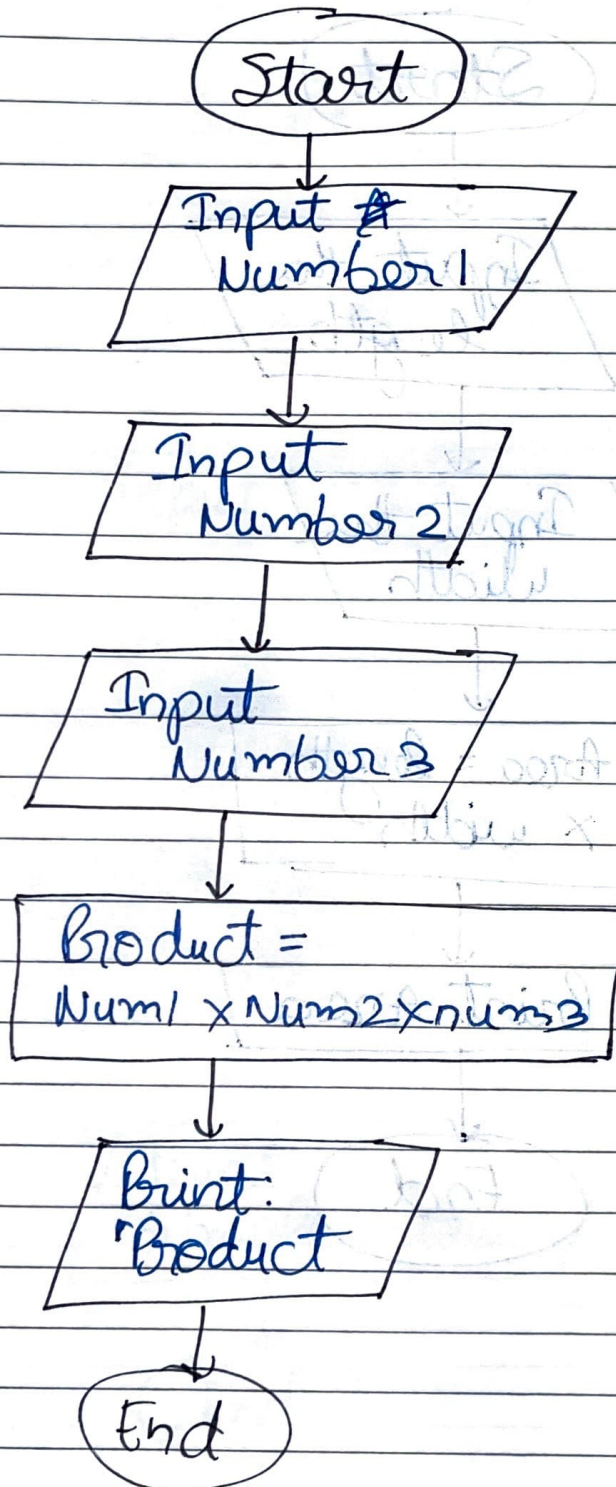 Start
Input
Number 1
Input
Number 2
Input
Number 3
Product =
Num1 x Num2 x num3
Print:
"Product
End